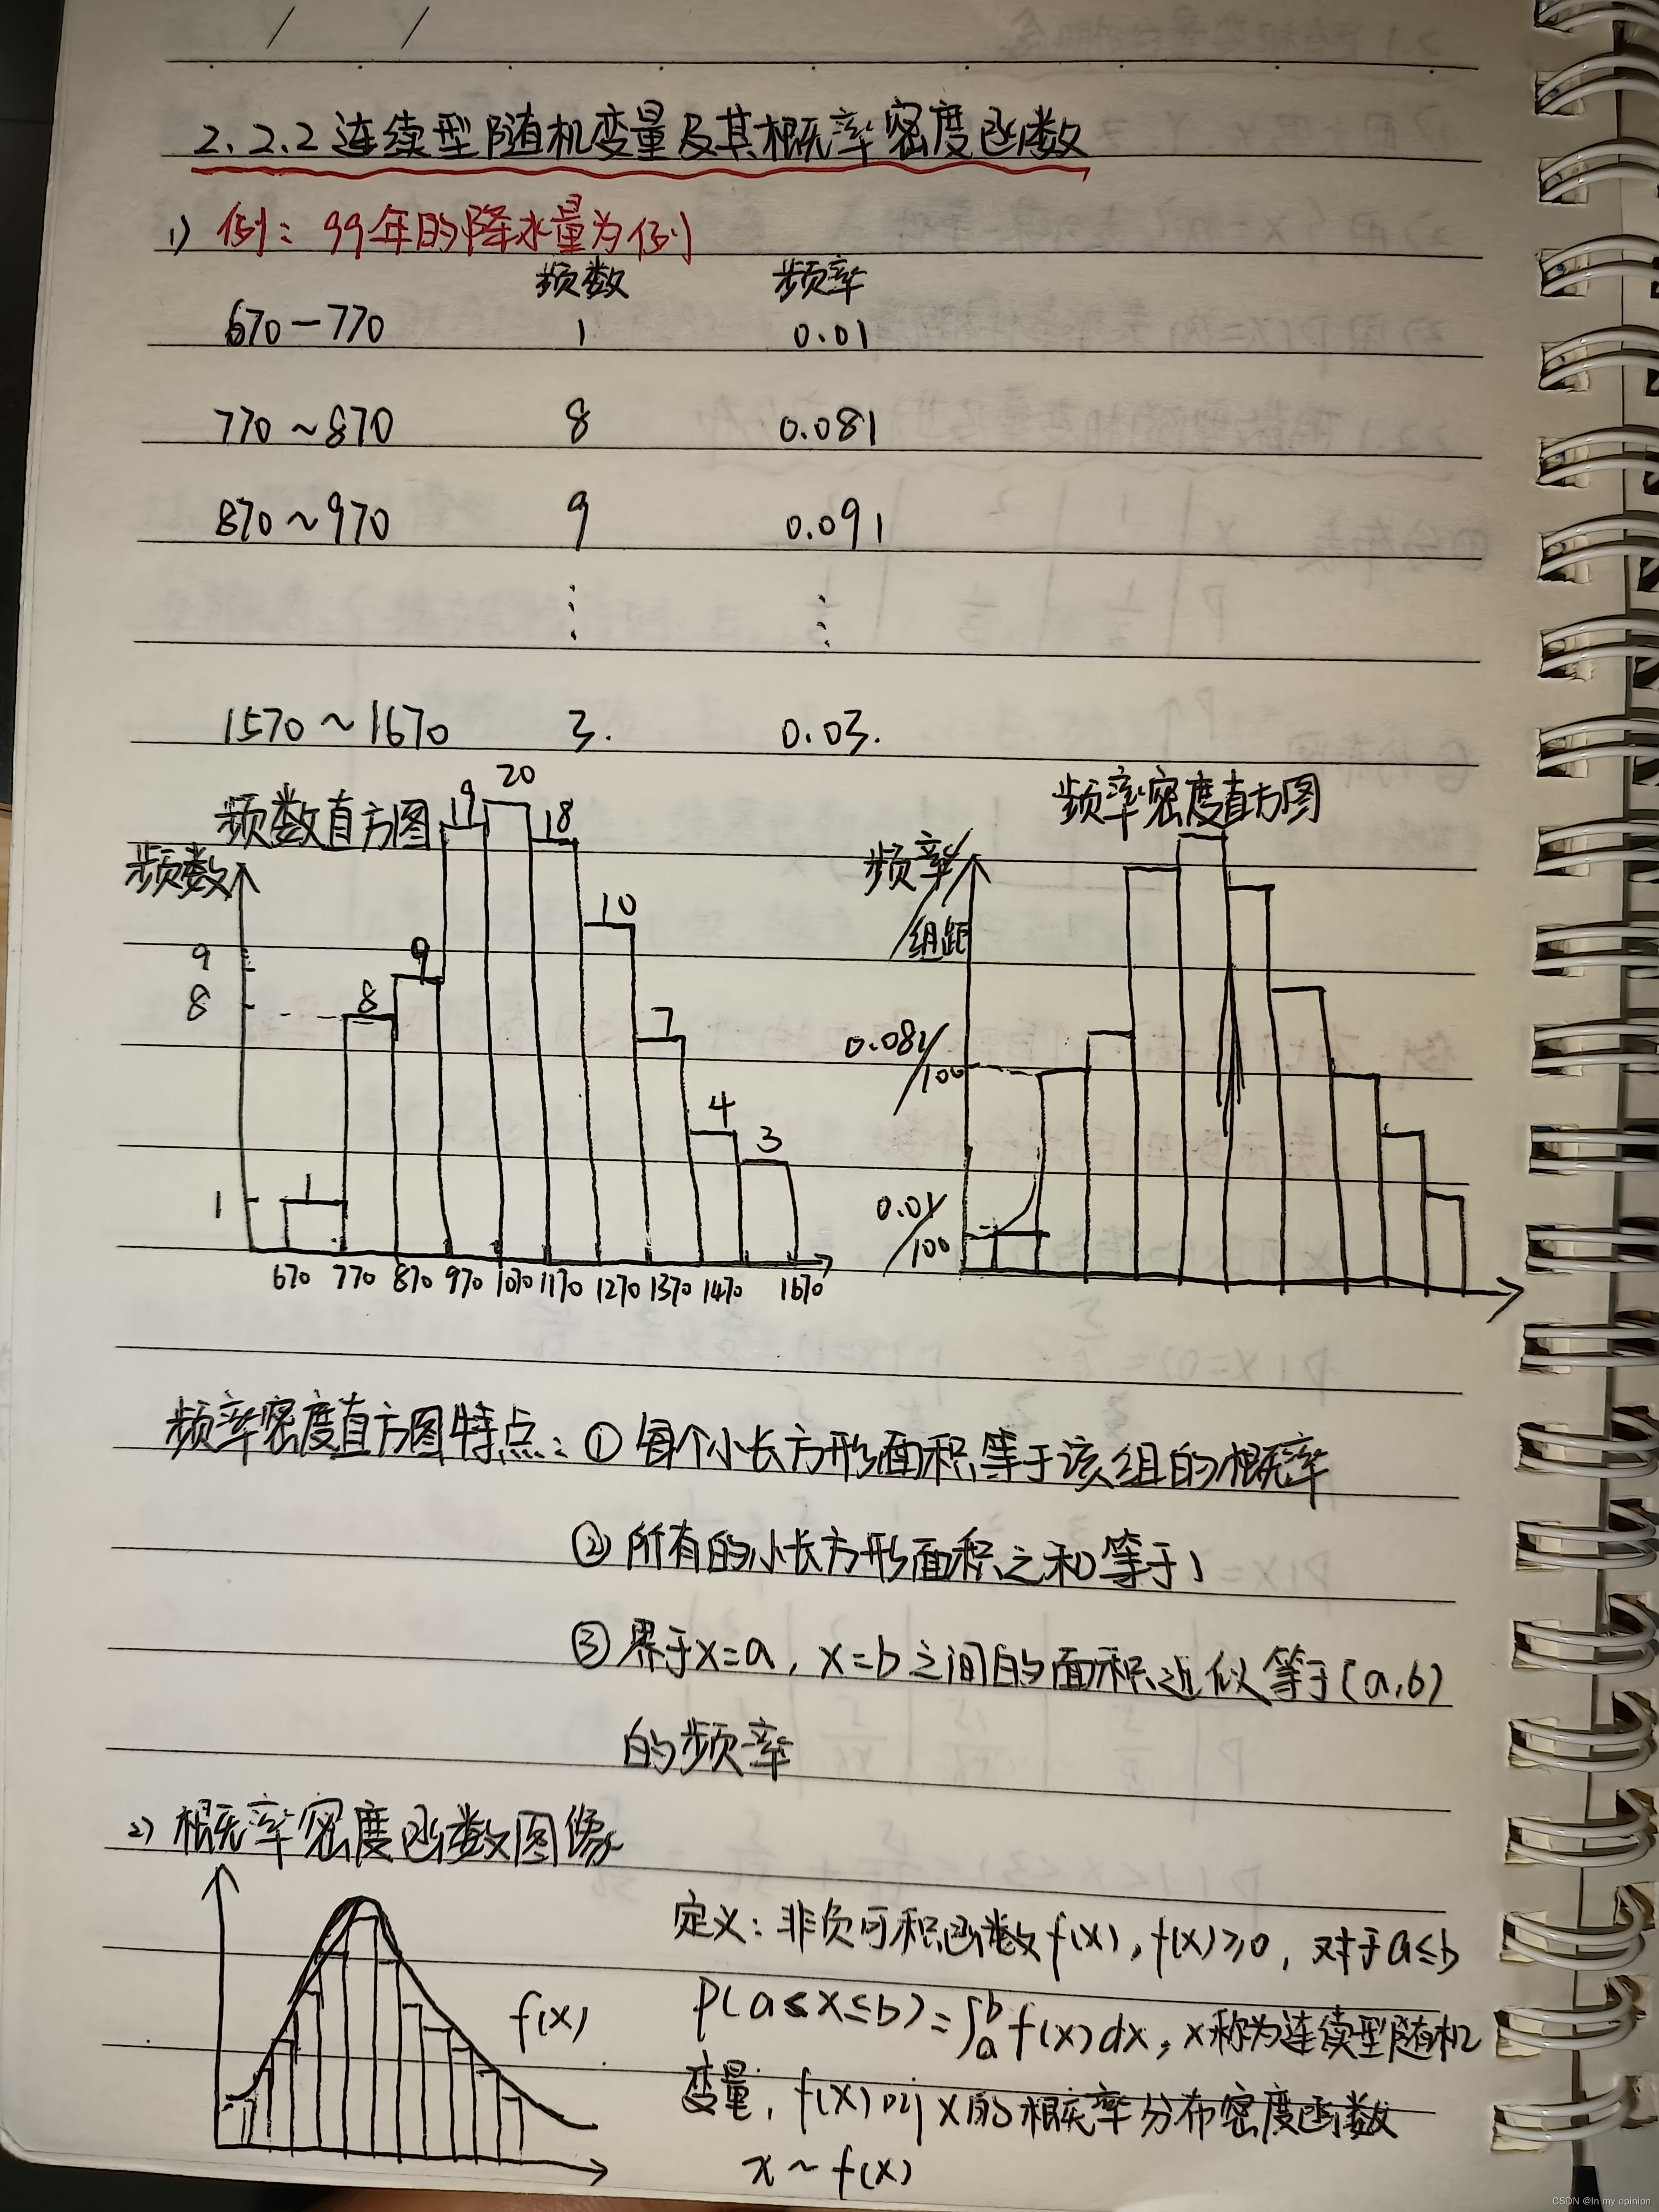 2.2.2 连续型随机变量及其概率密度函数
1) 例：99年的降水量为例
频数 频率
670-770 1 0.01
770~870 8 0.081
870~970 9 0.091
⋮ ⋮
1570~1670 3. 0.03.
频数直方图 频率密度直方图
频数 频率/组距
19 20 18
10
9 9
8 8
7
4
3
1 1
0.081/100
0.01/100
670 770 870 970 1070 1170 1270 1370 1470 1670
频率密度直方图特点：① 每个小长方形面积等于该组的概率
② 所有的小长方形面积之和等于1
③ 界于x=a，x=b之间的面积近似等于(a,b)
的频率
2) 概率密度函数图像
定义：非负可积函数f(x), f(x)≥0，对于a≤b
P(a≤X≤b)=∫ₐᵇf(x)dx，x称为连续型随机
变量，f(x)叫x的概率分布密度函数
x~f(x)
f(x)
CSDN @In my opinion